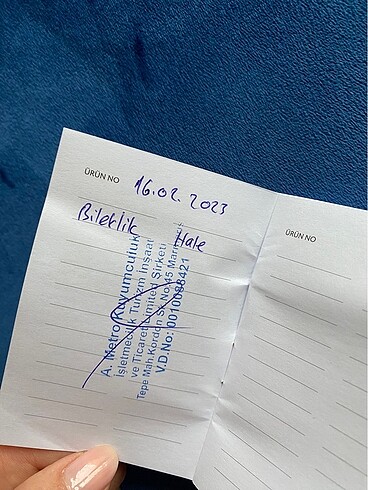 ÜRÜN NO 16.02.2023
Bileklik Hale
A. Metro Kuyumculuk
İşletmecilik Turizm İnşaat
ve Ticaret Limited Şirketi
Tepe Mah. Kordon Sk. No:45
V.D.No: 0010088421
ÜRÜN NO